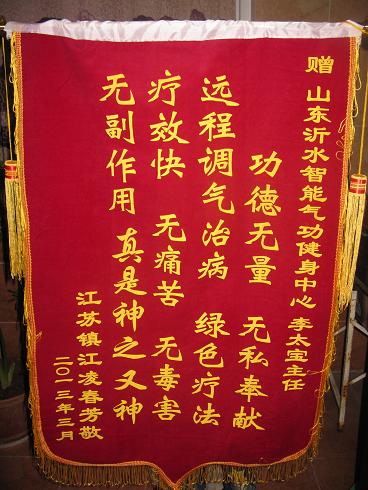 赠 山东沂水智能气功健身中心 李太宝主任
功德无量 无私奉献
远程调气治病 绿色疗法
疗效快 无痛苦 无毒害
无副作用 真是神之又神
江苏镇江凌春芳敬
二〇一三年三月